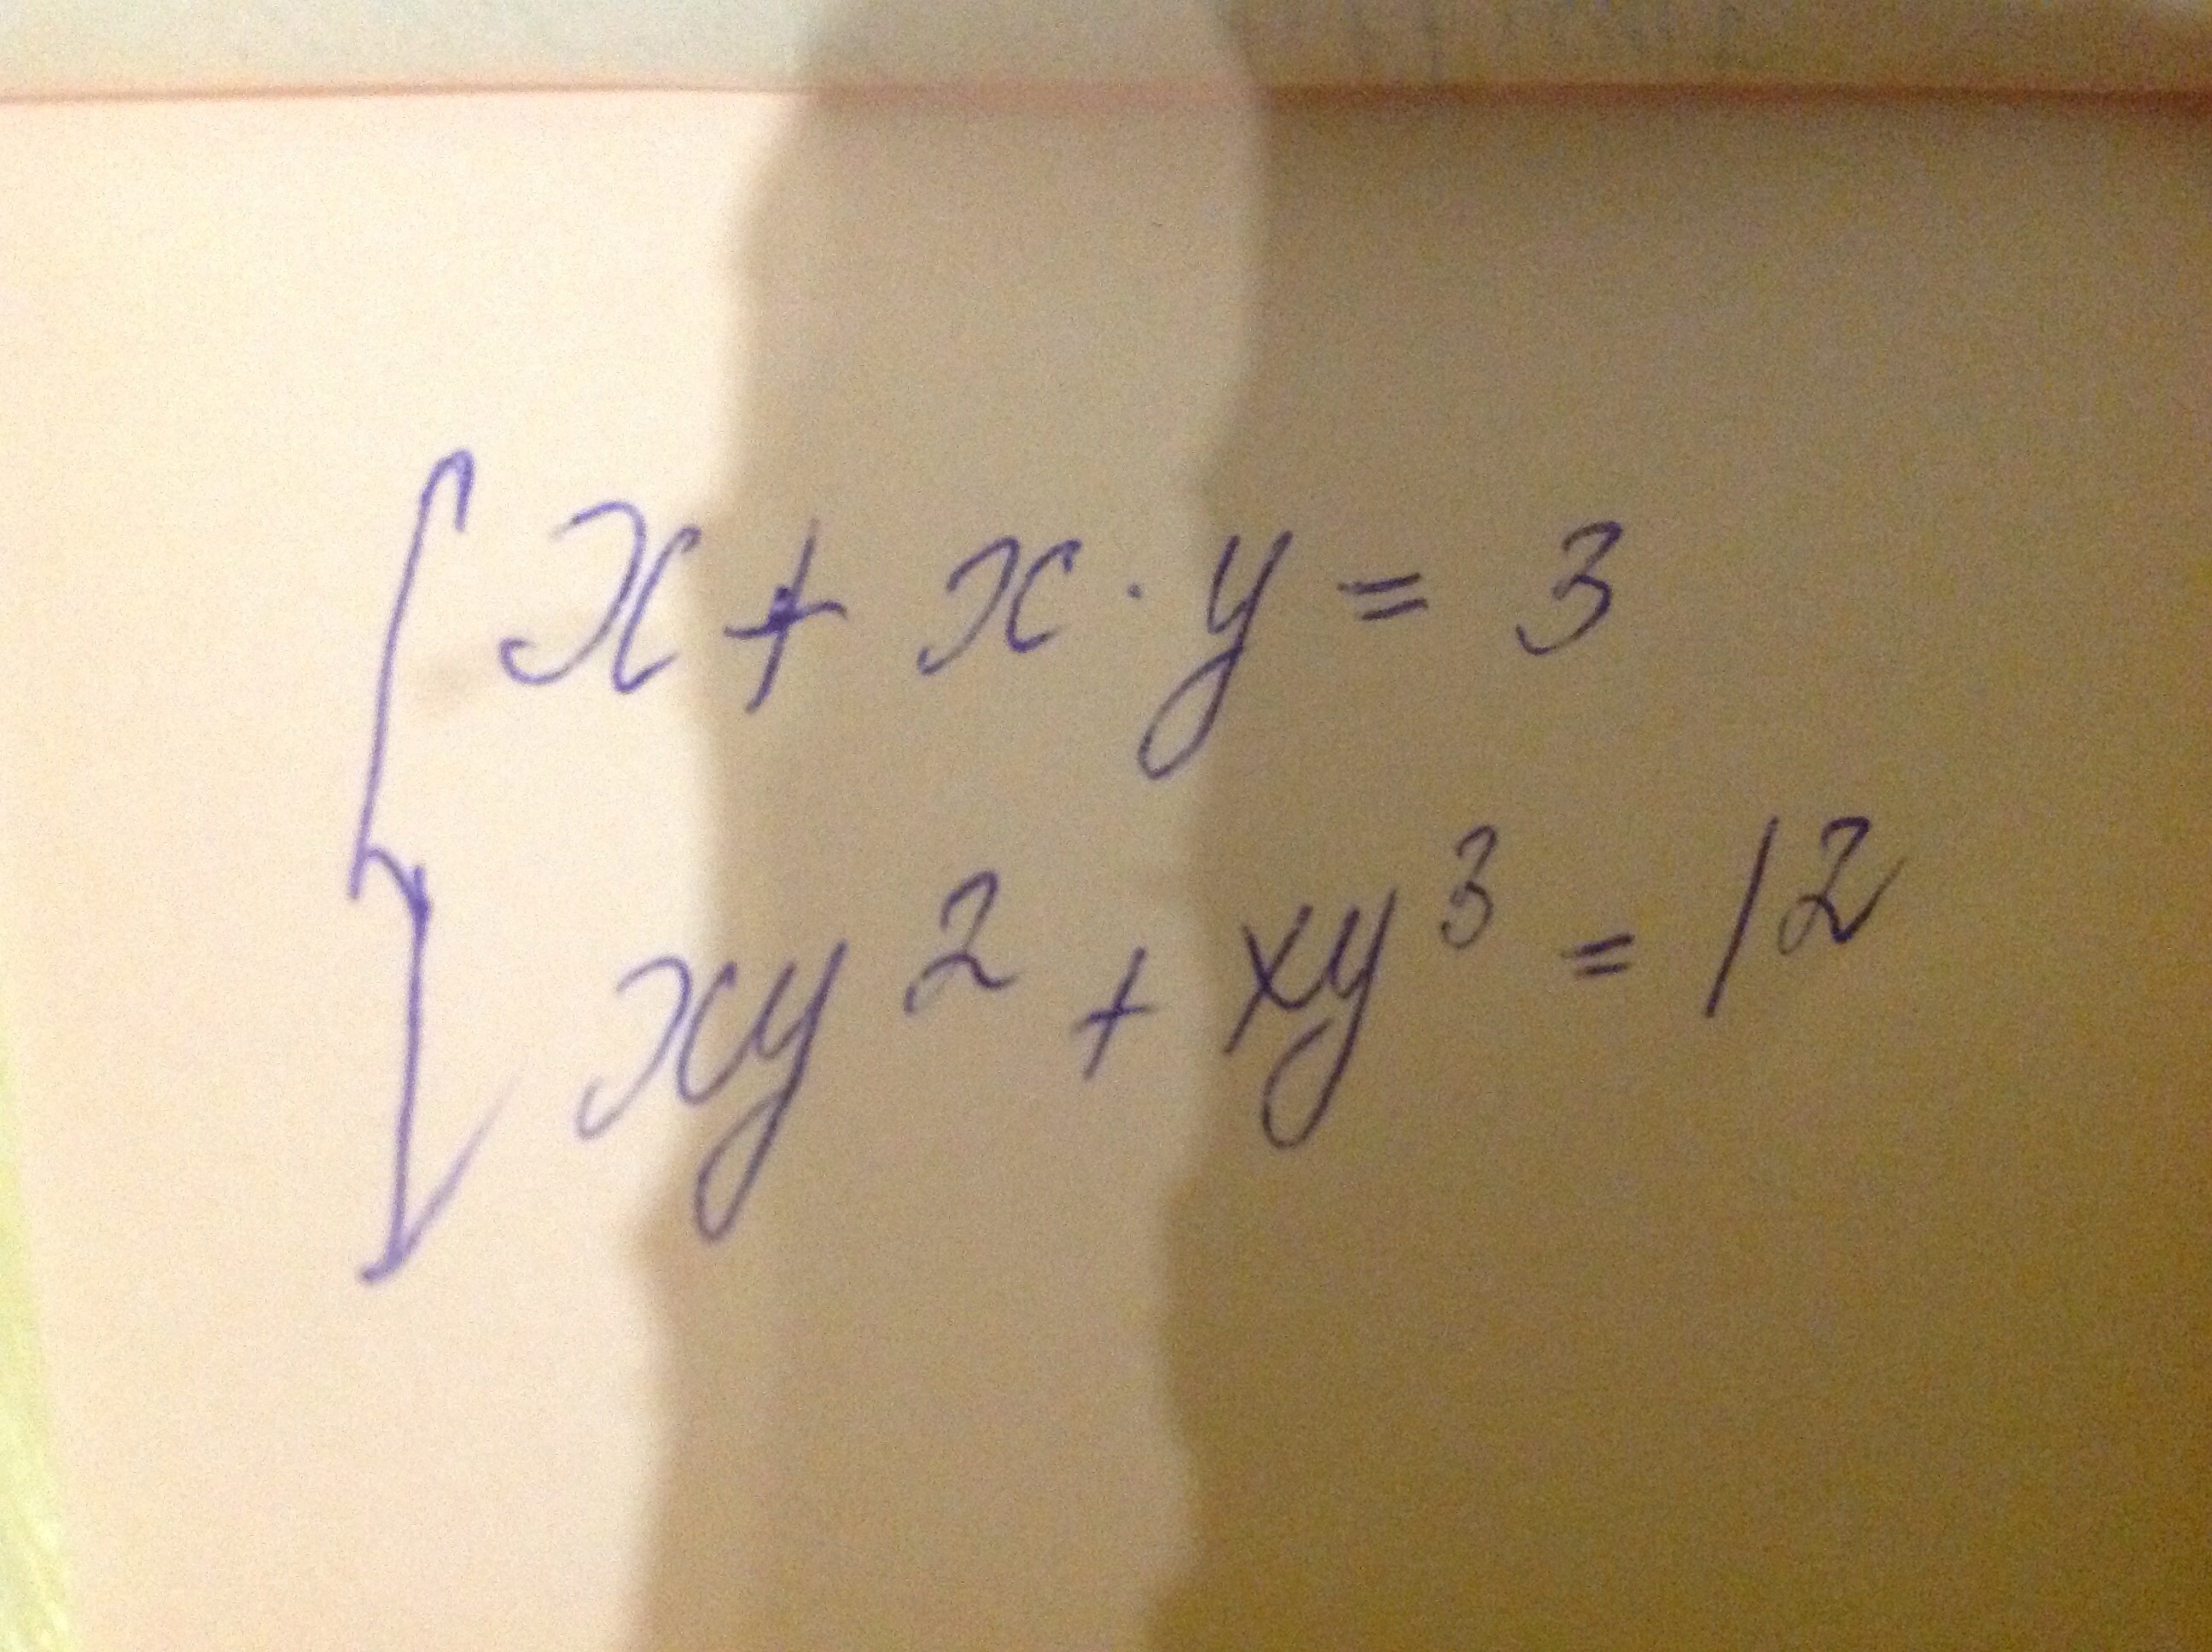 x + x · y = 3
xy² + xy³ = 12